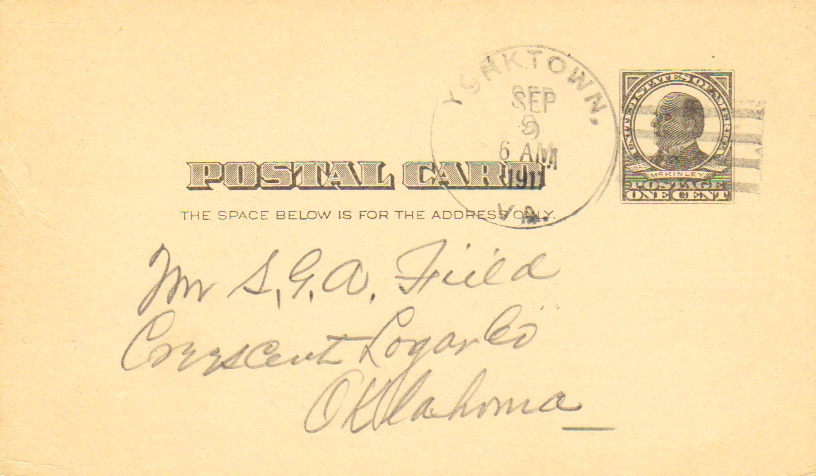 YORKTOWN,
SEP
9
6 AM
1911
VA.
UNITED STATES OF AMERICA
McKINLEY
POSTAGE
ONE CENT
POSTAL CARD
THE SPACE BELOW IS FOR THE ADDRESS ONLY.
Mr S. G. A. Field
Crescent Logan Co
Oklahoma